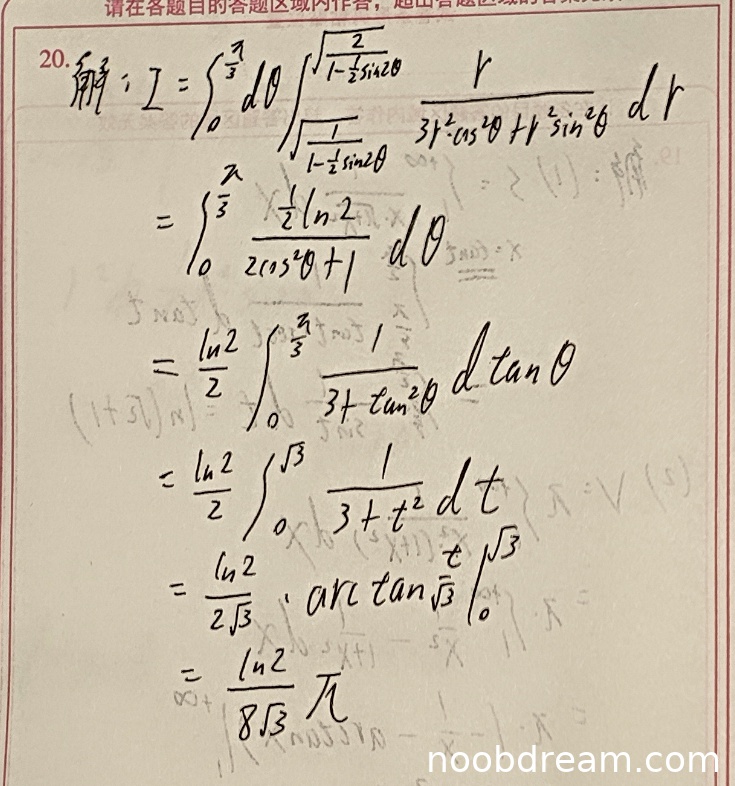 请在各题目的答题区域内作答，超出答题区域的答案无效
20. 解: I = ∫₀^{π/3} dθ ∫_{√(1/(1-½sin2θ))}^{√(2/(1-½sin2θ))} r/(3r²·cos²θ+r²sin²θ) dr
= ∫₀^{π/3} (½ln2)/(2cos²θ+1) dθ
= ln2/2 ∫₀^{π/3} 1/(3+tan²θ) d tanθ
= ln2/2 ∫₀^{√3} 1/(3+t²) dt
= ln2/(2√3) · arctan t/√3 |₀^{√3}
= ln2/(8√3) π
noobdream.com